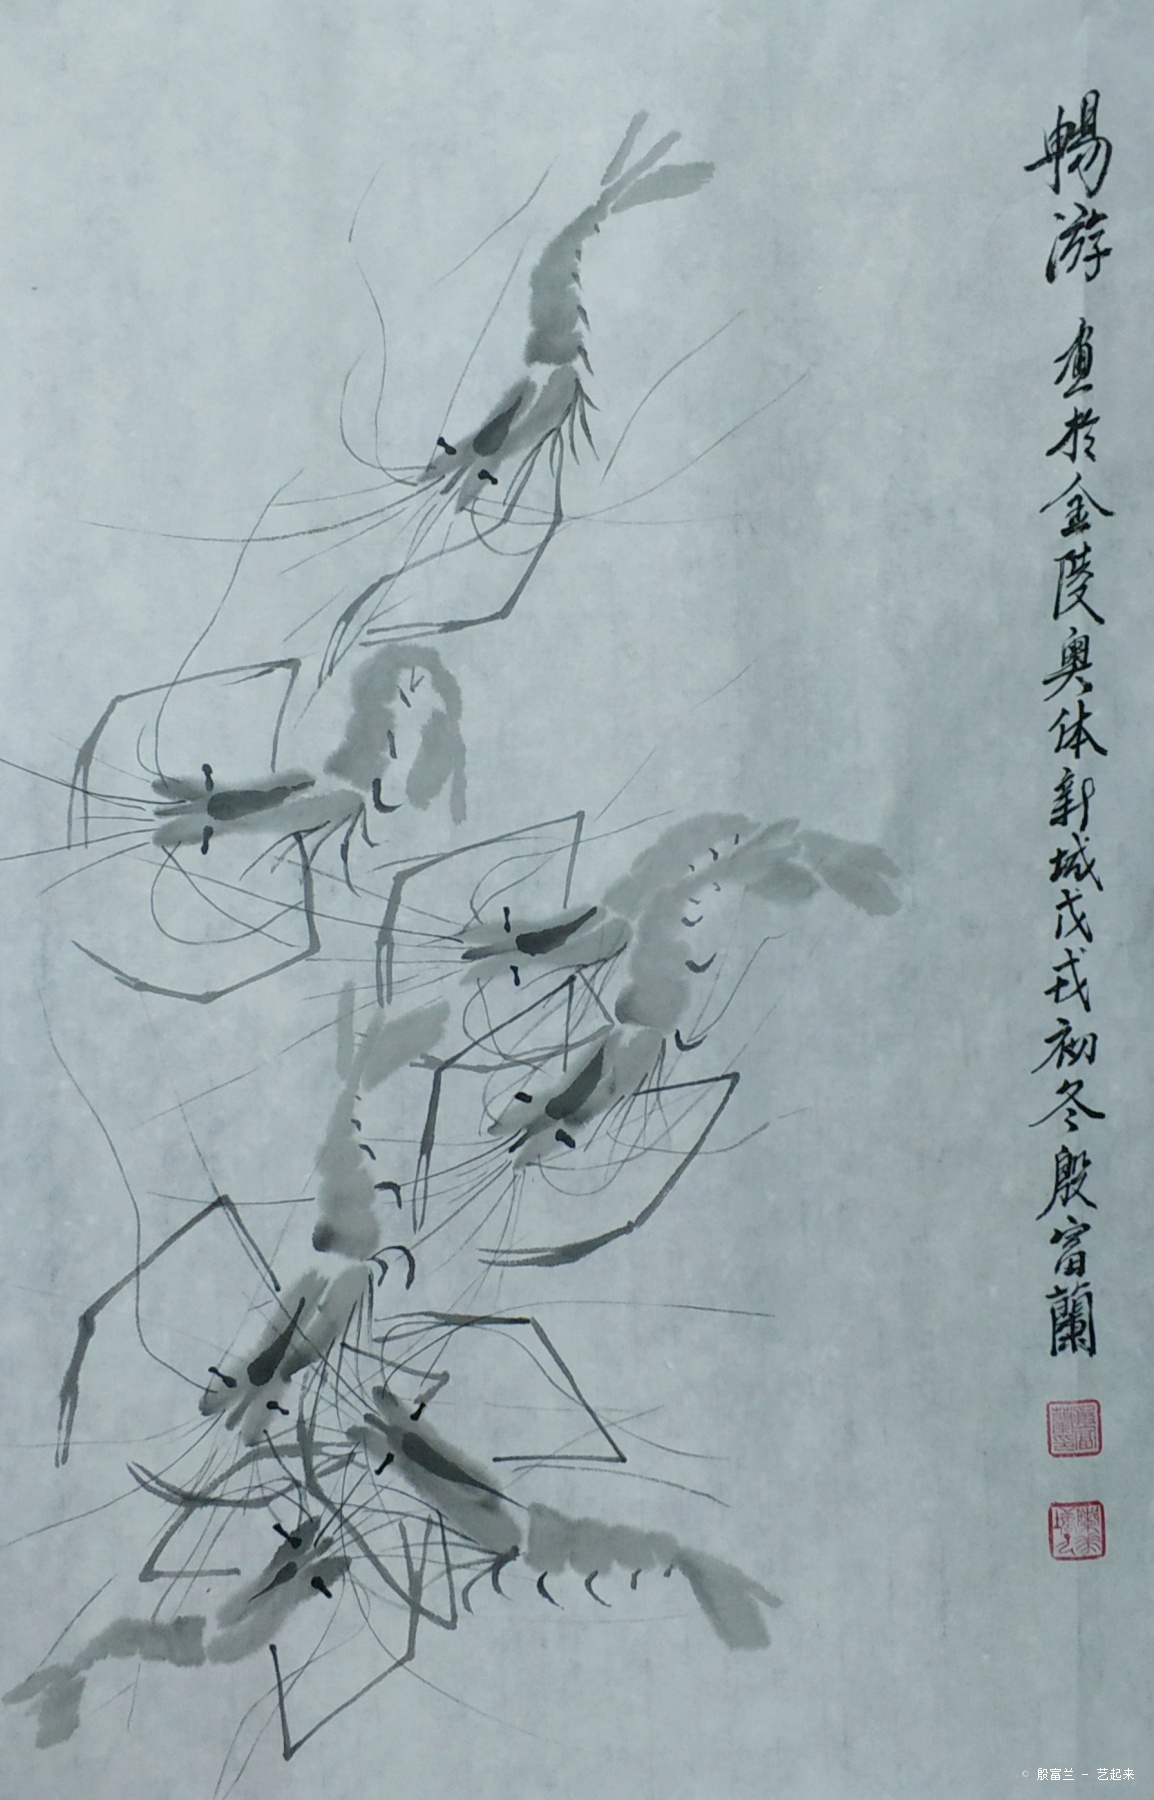 暢游 畫於金陵奥体新城戊戌初冬殷富蘭
© 殷富兰 - 艺起来